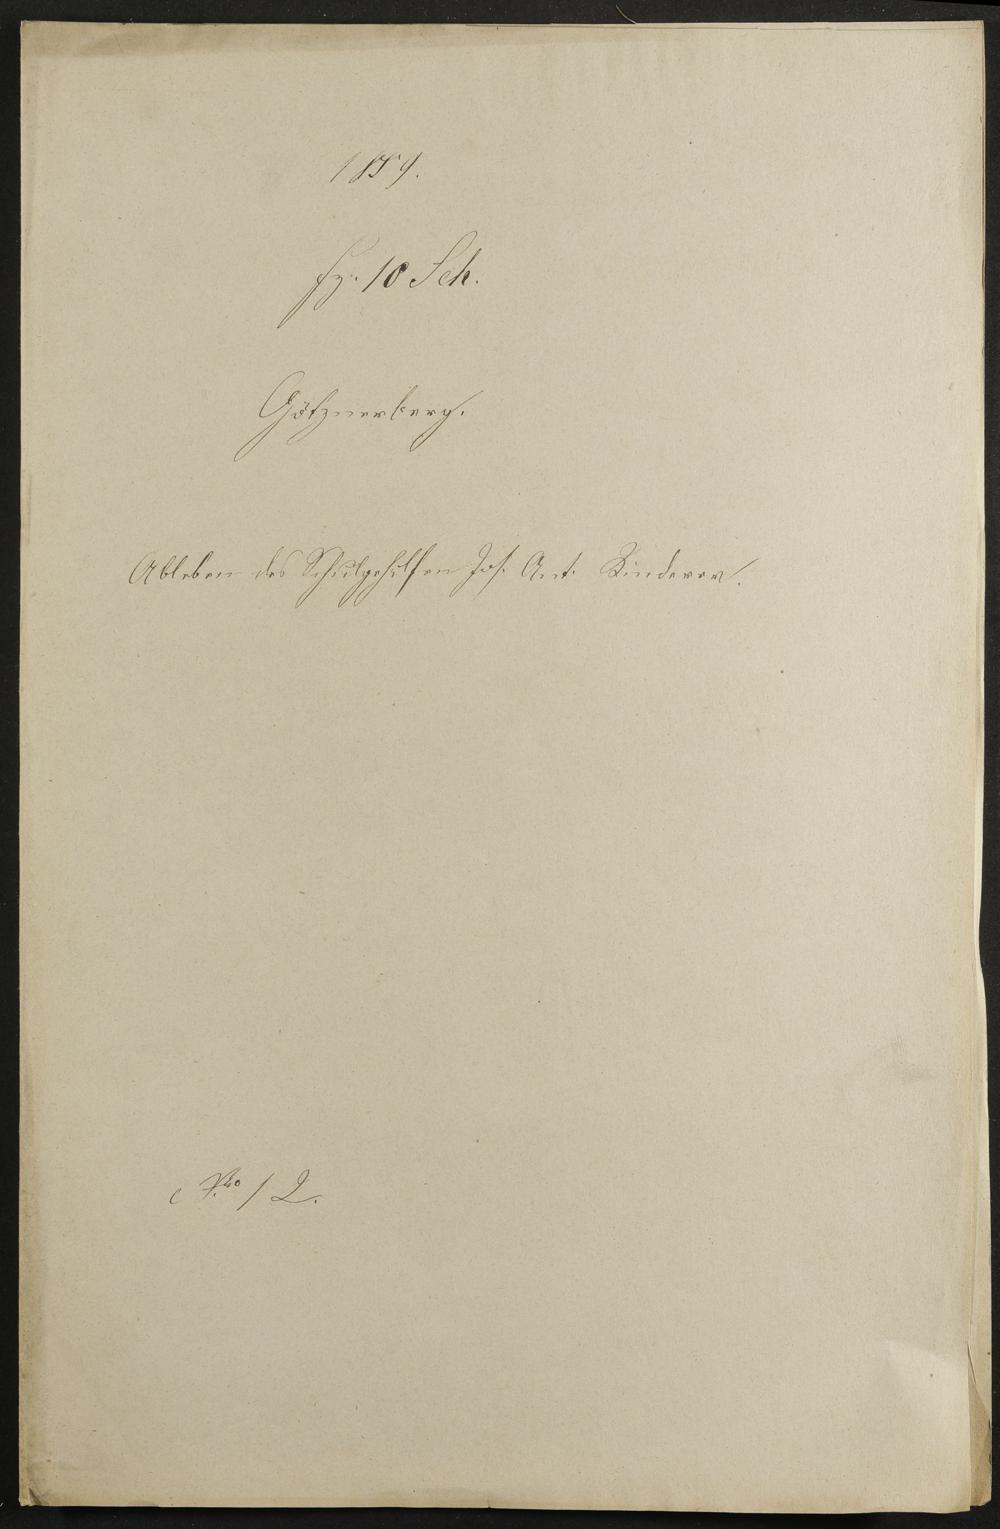 1859.
Fz. 10 Sch.
Götznerberg.
Ableben des Schulgehilfen Jos. Ant. Kinderer.
No 12.